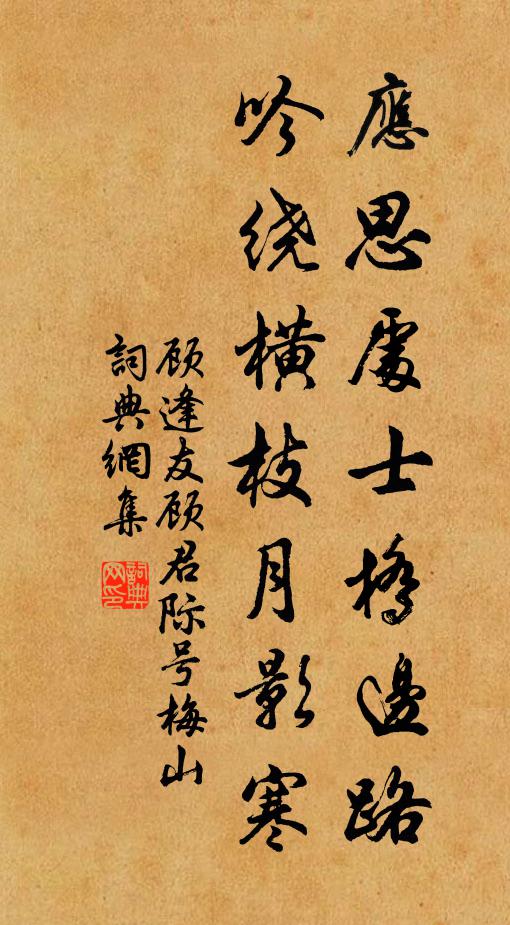 應思處士橋邊路
吟绕橫枝月影寒
顾逢友顾君际号梅山
詞典網集
詞典網印